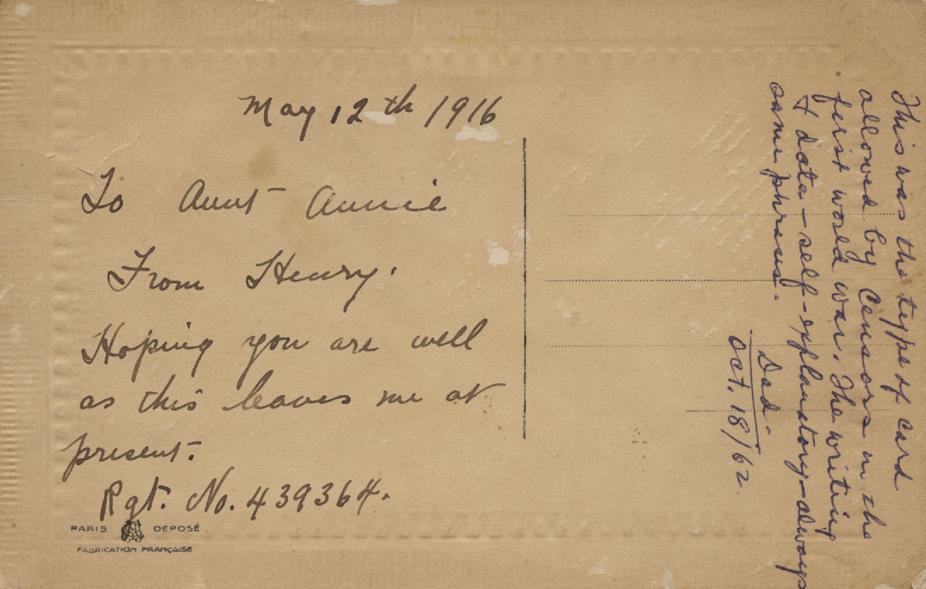 May 12th 1916
To Aunt Annie
From Henry.
Hoping you are well
as this leaves me at
present.
Rgt. No. 439364.
PARIS DEPOSÉ
FABRICATION FRANÇAISE
This was the type of card
allowed by Censors in the
first world war. The writing
& data - self-explanatory - always
same phrases.
Dad.
Oct. 18/62.